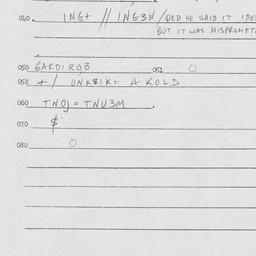 040. INGt // INGƐN / QED HE SAID IT IDE
BUT IT WAS MISPROMPT
050 GARDIROB 051 O
052 + / UNKBIKt A KOLS
060 TNOJ = TNUƐM.
070 $
080 O